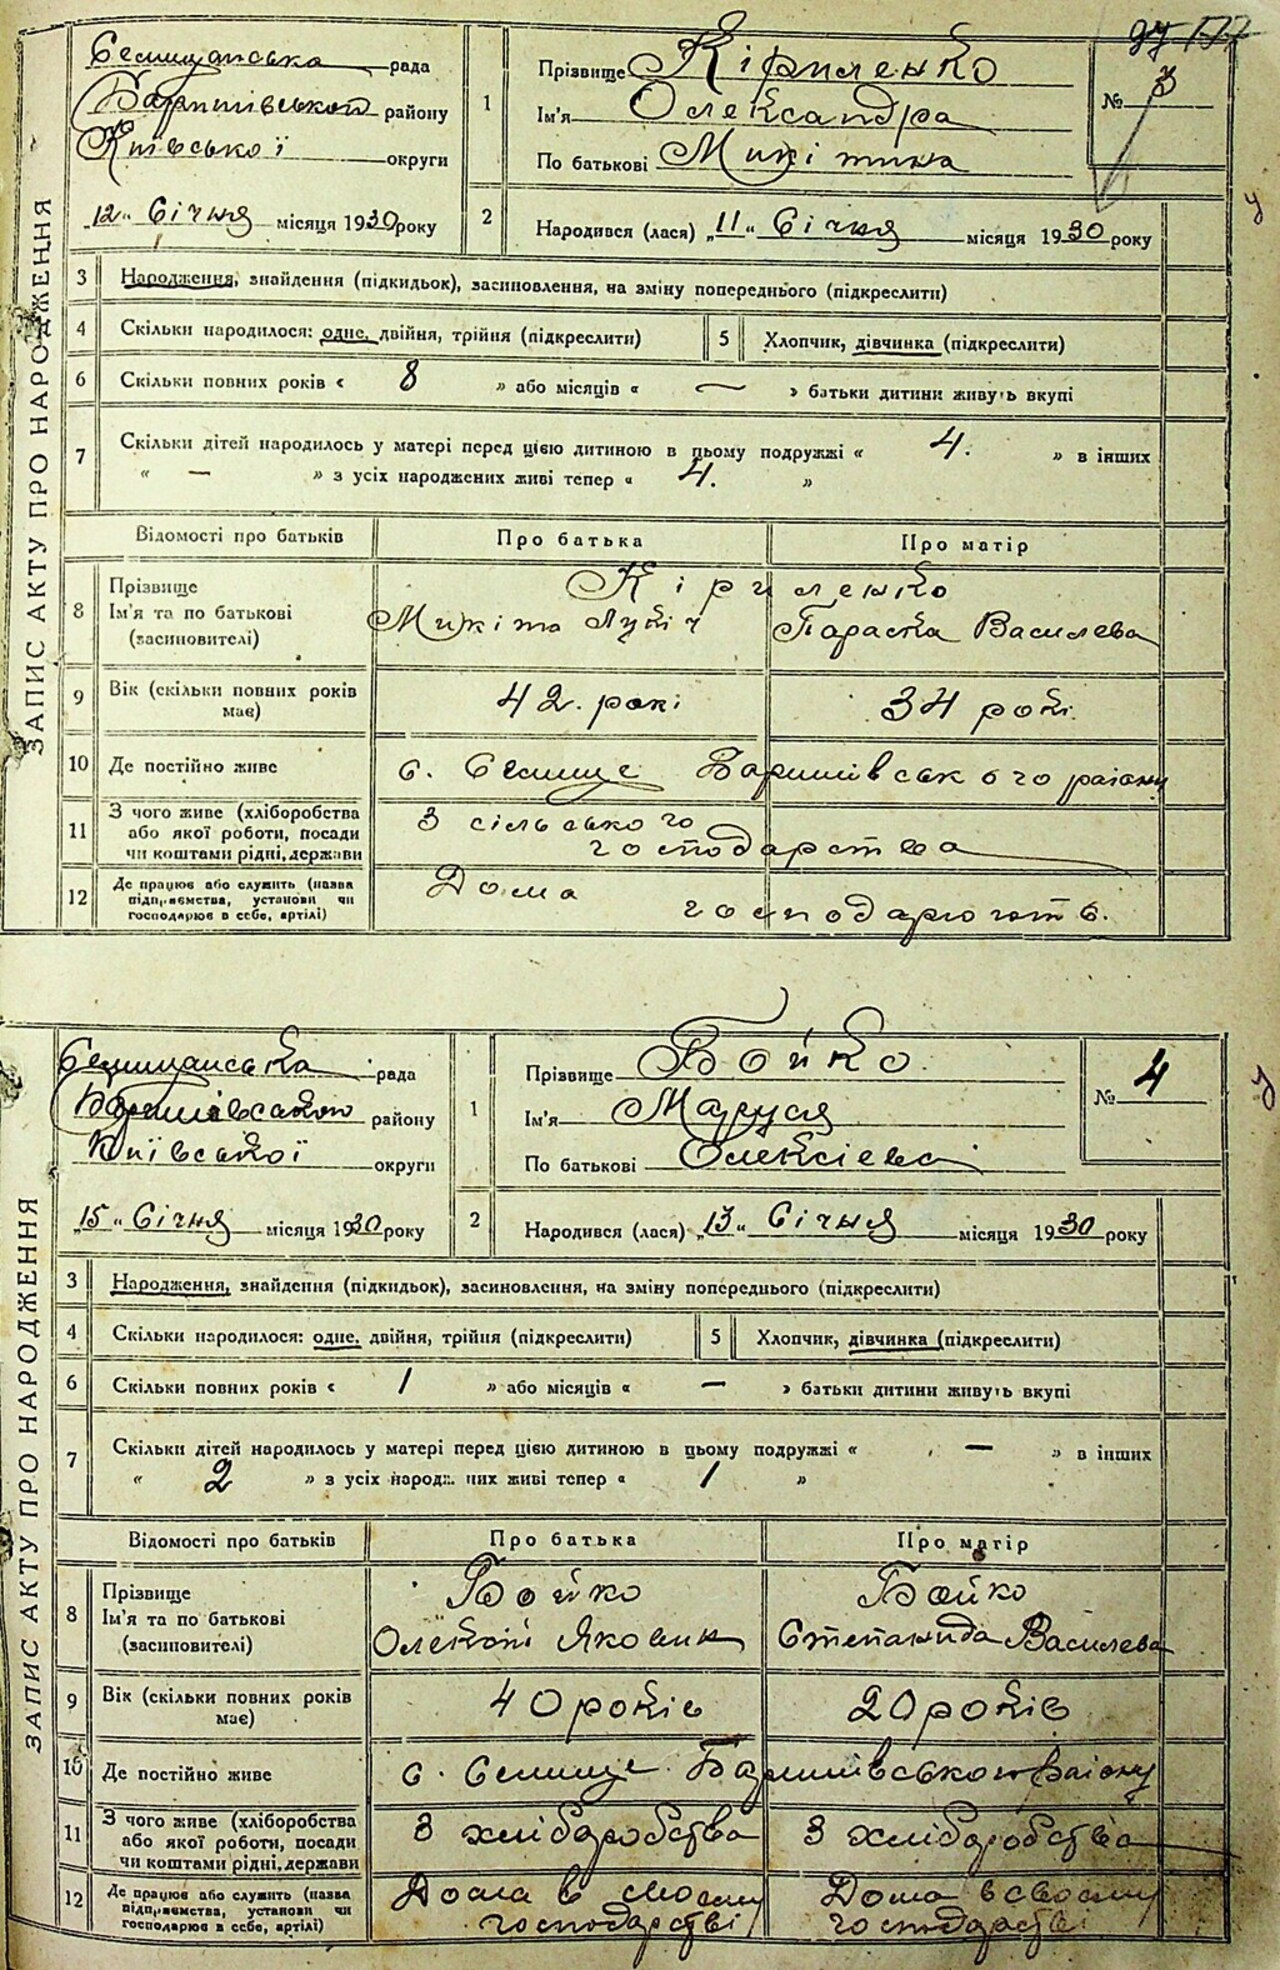 ЗАПИС АКТУ ПРО НАРОДЖЕННЯ
Селищанська рада
Баришівського району
Київської округи
„12“ Січня місяця 1930 року
1
Прізвище Кіриленко
Ім'я Олександра
По батькові Микітина
№ 3
2
Народився (лася) „11“ Січня місяця 1930 року
3 Народження, знайдення (підкидьок), засиновлення, на зміну попереднього (підкреслити)
4 Скільки народилося: одне, двійня, трійня (підкреслити) 5 Хлопчик, дівчинка (підкреслити)
6 Скільки повних років « 8 » або місяців « — » батьки дитини живуть вкупі
7 Скільки дітей народилось у матері перед цією дитиною в цьому подружжі « 4. » в інших
« — » з усіх народжених живі тепер « 4. »
Відомості про батьків Про батька Про матір
8 Прізвище Кіриленко
Ім'я та по батькові Микіта Лукіч Параска Василева
(засиновителі)
9 Вік (скільки повних років має) 42. рокі 34 рокі
10 Де постійно живе с. Селище Баришівського району
11 З чого живе (хліборобства З сільського
або якої роботи, посади господарства
чи коштами рідні, держави
12 Де працює або служить (назва Дома
підприємства, установи чи господарюють.
господарює в себе, артілі)
ЗАПИС АКТУ ПРО НАРОДЖЕННЯ
Селищанська рада
Баришівської району
Київської округи
„15“ Січня місяця 1930 року
1
Прізвище Бойко
Ім'я Маруся
По батькові Олексієва
№ 4
2
Народився (лася) „13“ Січня місяця 1930 року
3 Народження, знайдення (підкидьок), засиновлення, на зміну попереднього (підкреслити)
4 Скільки народилося: одне, двійня, трійня (підкреслити) 5 Хлопчик, дівчинка (підкреслити)
6 Скільки повних років « 1 » або місяців « — » батьки дитини живуть вкупі
7 Скільки дітей народилось у матері перед цією дитиною в цьому подружжі « — » в інших
« 2 » з усіх народжених живі тепер « 1 »
Відомості про батьків Про батька Про матір
8 Прізвище Бойко Бойко
Ім'я та по батькові Олексій Яковик Степанида Василева
(засиновителі)
9 Вік (скільки повних років має) 40 років 20 років
10 Де постійно живе с. Селище Баришівського району
11 З чого живе (хліборобства З хліборобства З хліборобства
або якої роботи, посади
чи коштами рідні, держави
12 Де працює або служить (назва Дома в своєму Дома в своєму
підприємства, установи чи господарстві господарстві
господарює в себе, артілі)